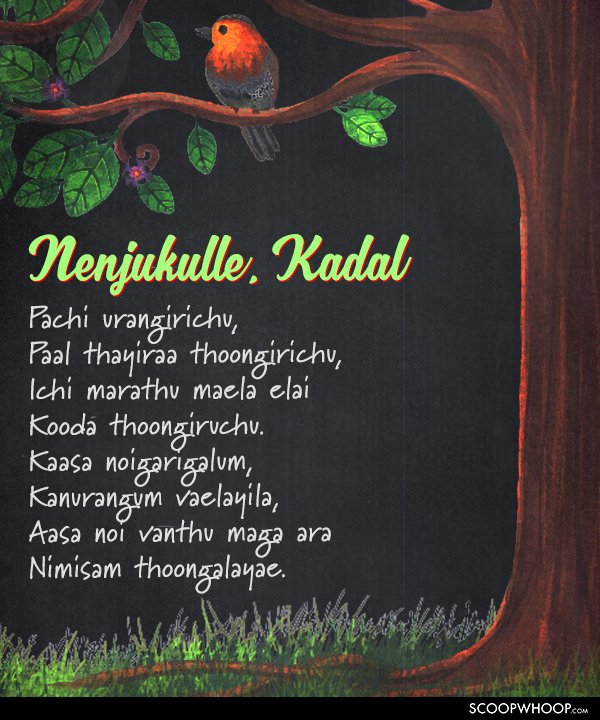 Nenjukulle, Kadal
Pachi urangirichu,
Paal thayiraa thoongirichu,
Ichi marathu maela elai
Kooda thoongiruchu.
Kaasa noigarigalum,
Kanurangum vaelayila,
Aasa noi vanthu maga ara
Nimisam thoongalayae.
SCOOPWHOOP.COM